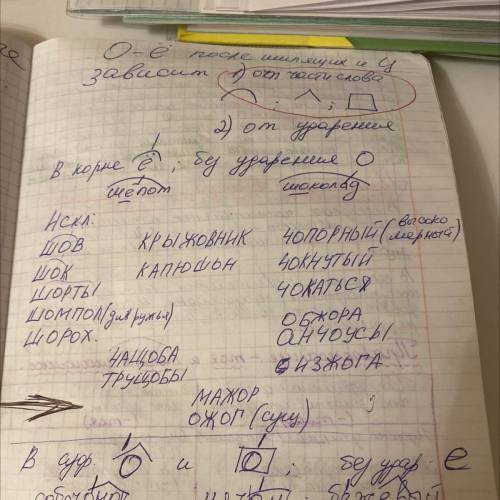 О-ё после шипящих и Ц
зависит 1) от части слова
2) от ударения
В корне ё ; без ударения О
шёпот шоколад
Искл.
ШОВ КРЫЖОВНИК ЧОПОРНЫЙ (высокомерный)
ШОК КАПЮШОН ЧОКНУТЫЙ
ШОРТЫ ЧОКАТЬСЯ
ШОМПОЛ (для ружья) ОБЖОРА
ШОРОХ. АНЧОУСЫ
ЧАЩОБА ИЗЖОГА
ТРУЩОБЫ
МАЖОР
ОЖОГ (сущ)
В суф. О и О ; без удар. е